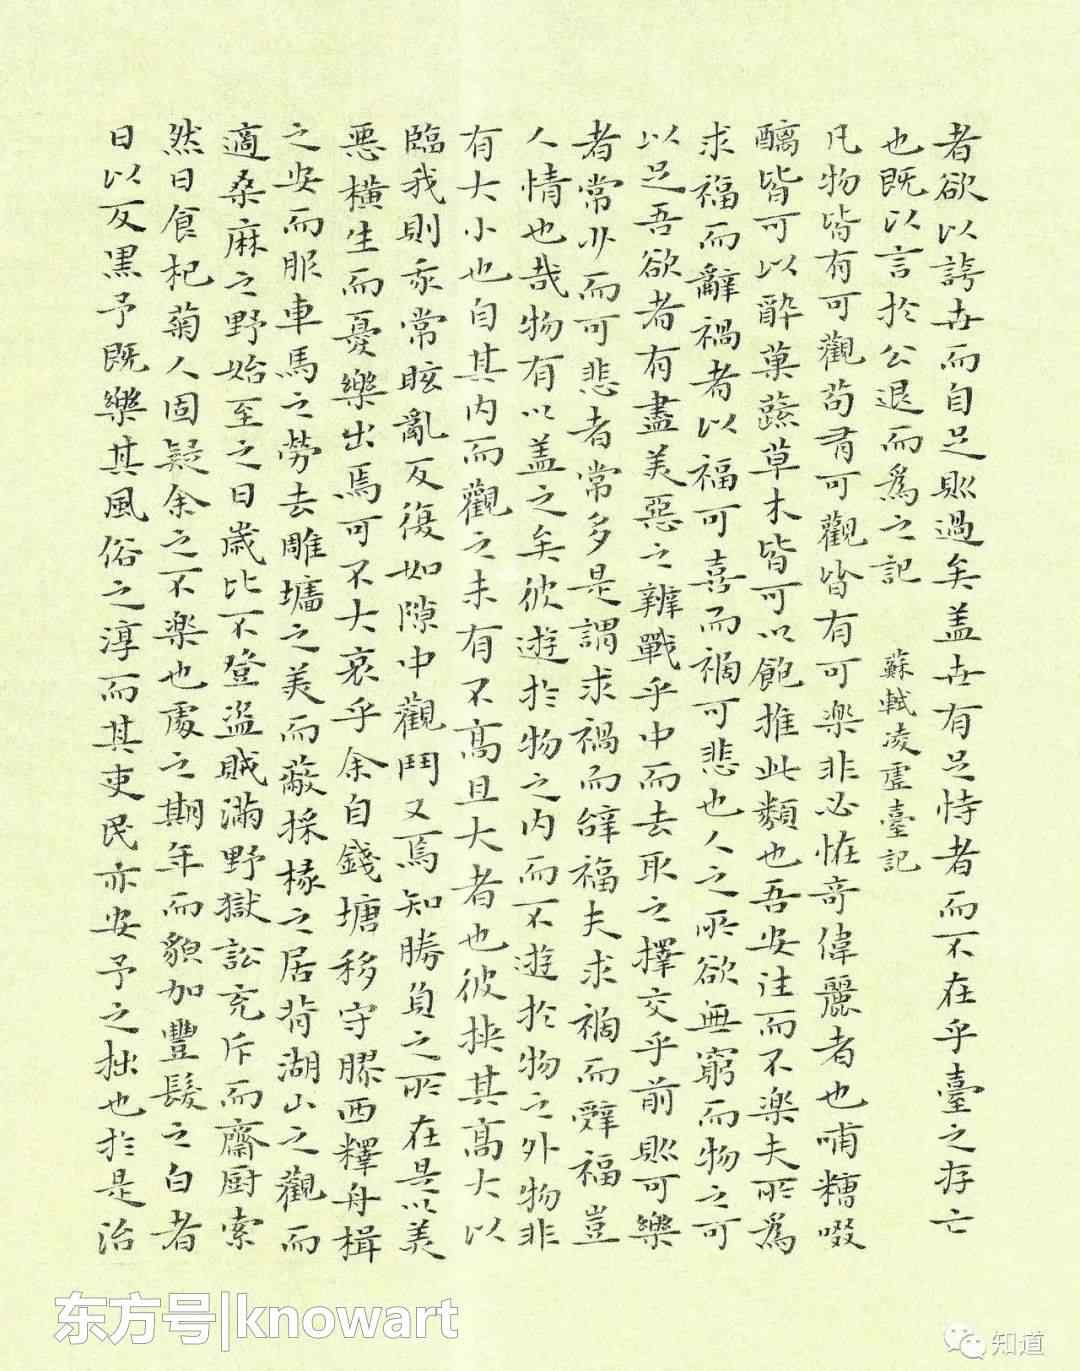 者欲以誇世而自足則過矣盖世有足恃者而不在乎臺之存亡
也既以言於公退而爲之記 蘇軾凌虛臺記
凡物皆有可觀苟有可觀皆有可樂非必恠奇偉麗者也哺糟啜
醨皆可以醉菓蔬草木皆可以飽推此類也吾安往而不樂夫所爲
求福而辭禍者以福可喜而禍可悲也人之所欲無窮而物之可
以足吾欲者有盡美惡之辨戰乎中而去取之擇交乎前則可樂
者常少而可悲者常多是謂求禍而辝福夫求禍而辭福豈
人情也哉物有以盖之矣彼遊於物之内而不遊於物之外物非
有大小也自其内而觀之未有不高且大者也彼挾其高大以
臨我則我常眩亂反復如隙中觀鬥又焉知勝負之所在是以美
惡橫生而憂樂出焉可不大哀乎余自錢塘移守膠西釋舟楫
之安而服車馬之勞去雕墻之美而蔽採椽之居背湖山之觀而
適桑麻之野始至之日歲比不登盜賊滿野獄訟充斥而齋厨索
然日食杞菊人固疑余之不樂也處之期年而貌加豐髮之白者
日以反黑予既樂其風俗之淳而其吏民亦安予之拙也於是治
东方号|knowart
知道